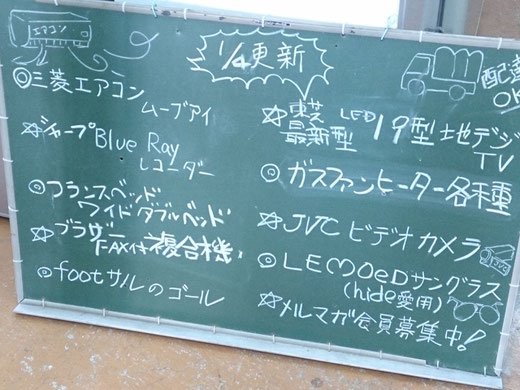 エアコン
1/4更新
配達
OK
◎三菱エアコン
ムーブアイ
☆シャープBlue Ray
レコーダー
◎フランスベッド
ワイドダブルベッド
☆ブラザー
FAXイキ 複合機
◎footサルのゴール
☆東芝 LED 19型地デジ
最新型 TV
◎ガスファンヒーター各種
☆JVC ビデオカメラ
JVC
◎LEMOeDサングラス
(hide愛用)
☆メルマガ会員募集中!